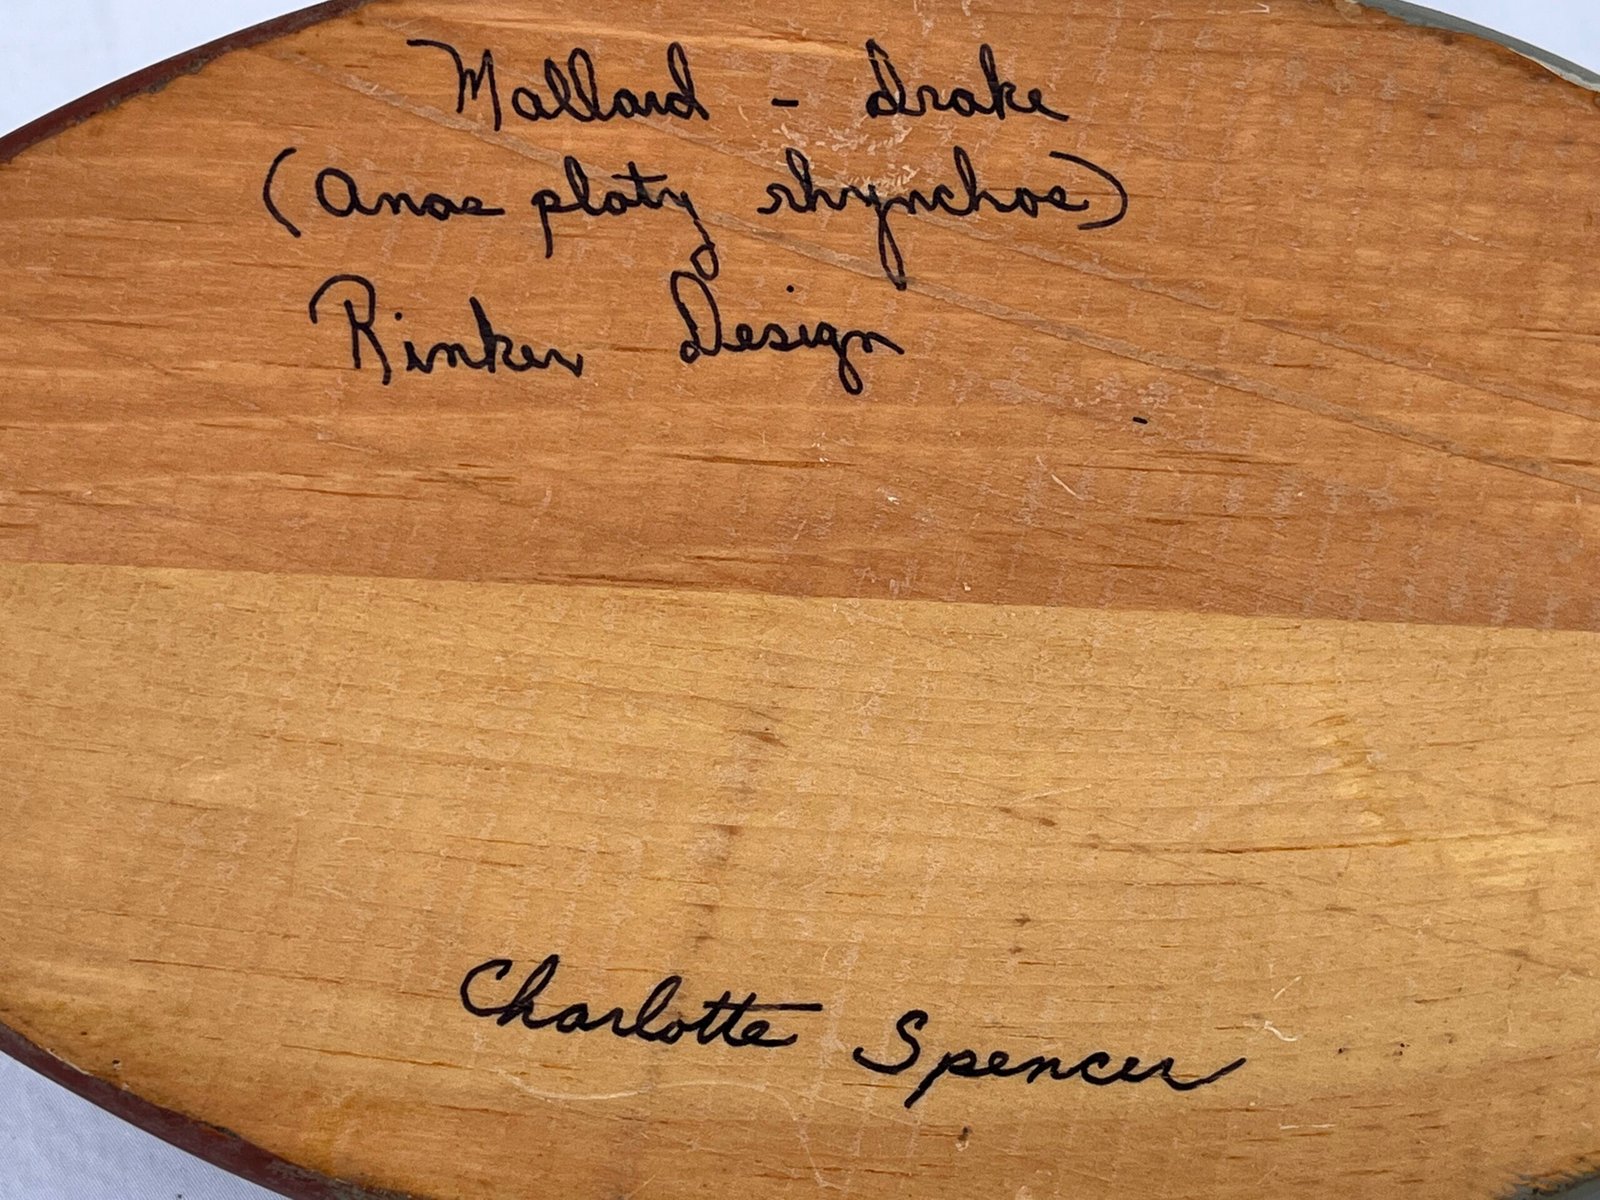 Mallard - Drake
(Anas platy rhynchos)
Rinker Design
Charlotte Spencer